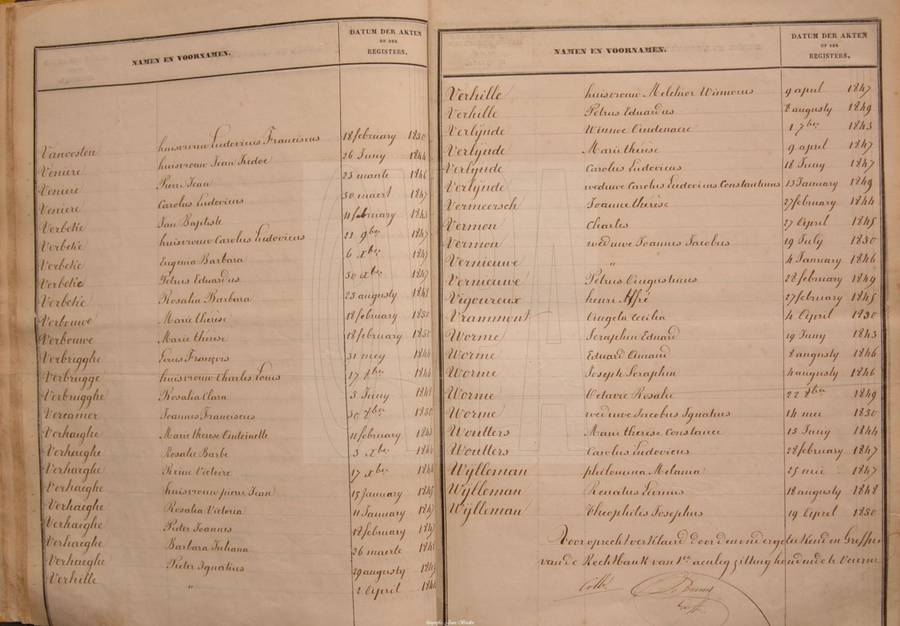 NAMEN EN VOORNAMEN.
DATUM DER AKTEN
OF DER
REGISTERS.
Vancosten huisvrouw Ludovicus Franciscus 18 february 1850
Veniere huisvrouw Jean 26 Juny 1844
Veniere Pieri Jean 23 maerte 1846
Veniere Carolus Ludovicus 30 maert 1847
Verbeke Jan Baptiste 11 february 1843
Verbeke huisvrouw Carolus Ludovicus 21 9ber 1847
Verbeke Eugenia Barbara 6 xber 1847
Verbeke Petrus Eduardus 30 xber 1847
Verbeke Rosalia Barbara 23 augusty 1848
Verbouwe Marie thérèse 18 february 1850
Verbouwe Marie thérèse 18 february 1850
Verbrigghe Louis François 31 mey 1844
Verbrugge huisvrouw Charles Louis 17
Verbrugghe Rosalia Clara 3 Juny 1848
Vercamer Joannes Franciscus 30 1850
Verhaeghe Marie therese 11 february 1843
Verhaeghe Rosalie Barbe 3 xber
Verhaeghe Reine Victoire 17 xber
Verhaeghe huisvrouw pierre Jean 15 January
Verhaeghe Rosalia Victoria 11 January 1847
Verhaeghe Pieter Joannes 12 february
Verhaeghe Barbara Juliana 26 maerte
Verhaeghe Pieter Ignatius 29 augusty 1849
Verhille " 2 April
NAMEN EN VOORNAMEN.
DATUM DER AKTEN
OF DER
REGISTERS.
Verhille huisvrouw Melchior Winnocus 9 april 1847
Verhille Petrus Eduardus 8 augusty 1849
Verlynde Winnoc 1 7ber 1843
Verlynde Marie thérèse 9 april 1847
Verlynde Carolus Ludovicus 18 Juny 1847
Verlynde weduwe Carolus Ludovicus Constantinus 13 January 1849
Vermeersch Joanne thérèse 27 february 1844
Vermon Charles 27 April 1845
Vermon weduwe Joannes Jacobus 19 July 1850
Vernieuwe " 4 January 1846
Vernieuwe Petrus Augustinus 28 february 1849
Vigoureux henri 27 february 1845
Vrammont Angela Cecilia 4 April 1850
Worme Seraphin Eduard 19 Juny 1843
Worme Eduard Amand 8 augusty 1846
Worme Joseph Seraphin 4 augusty 1846
Worme Octavie Rosalie 22 1849
Worme weduwe Jacobus Ignatius 14 mei 1850
Woutters Marie thérèse Constance 15 Juny 1844
Woutters Carolus Ludovicus 28 february 1847
Wylleman philomina Melania 25 mei 1847
Wylleman Renatus 18 augusty 1848
Wylleman Theophilus Josephus 19 April 1850
Voor oprecht verklaerd door den ondergeteekenden Greffier
van de Rechtbank van 1en aenleg zitting houdende te Veurne